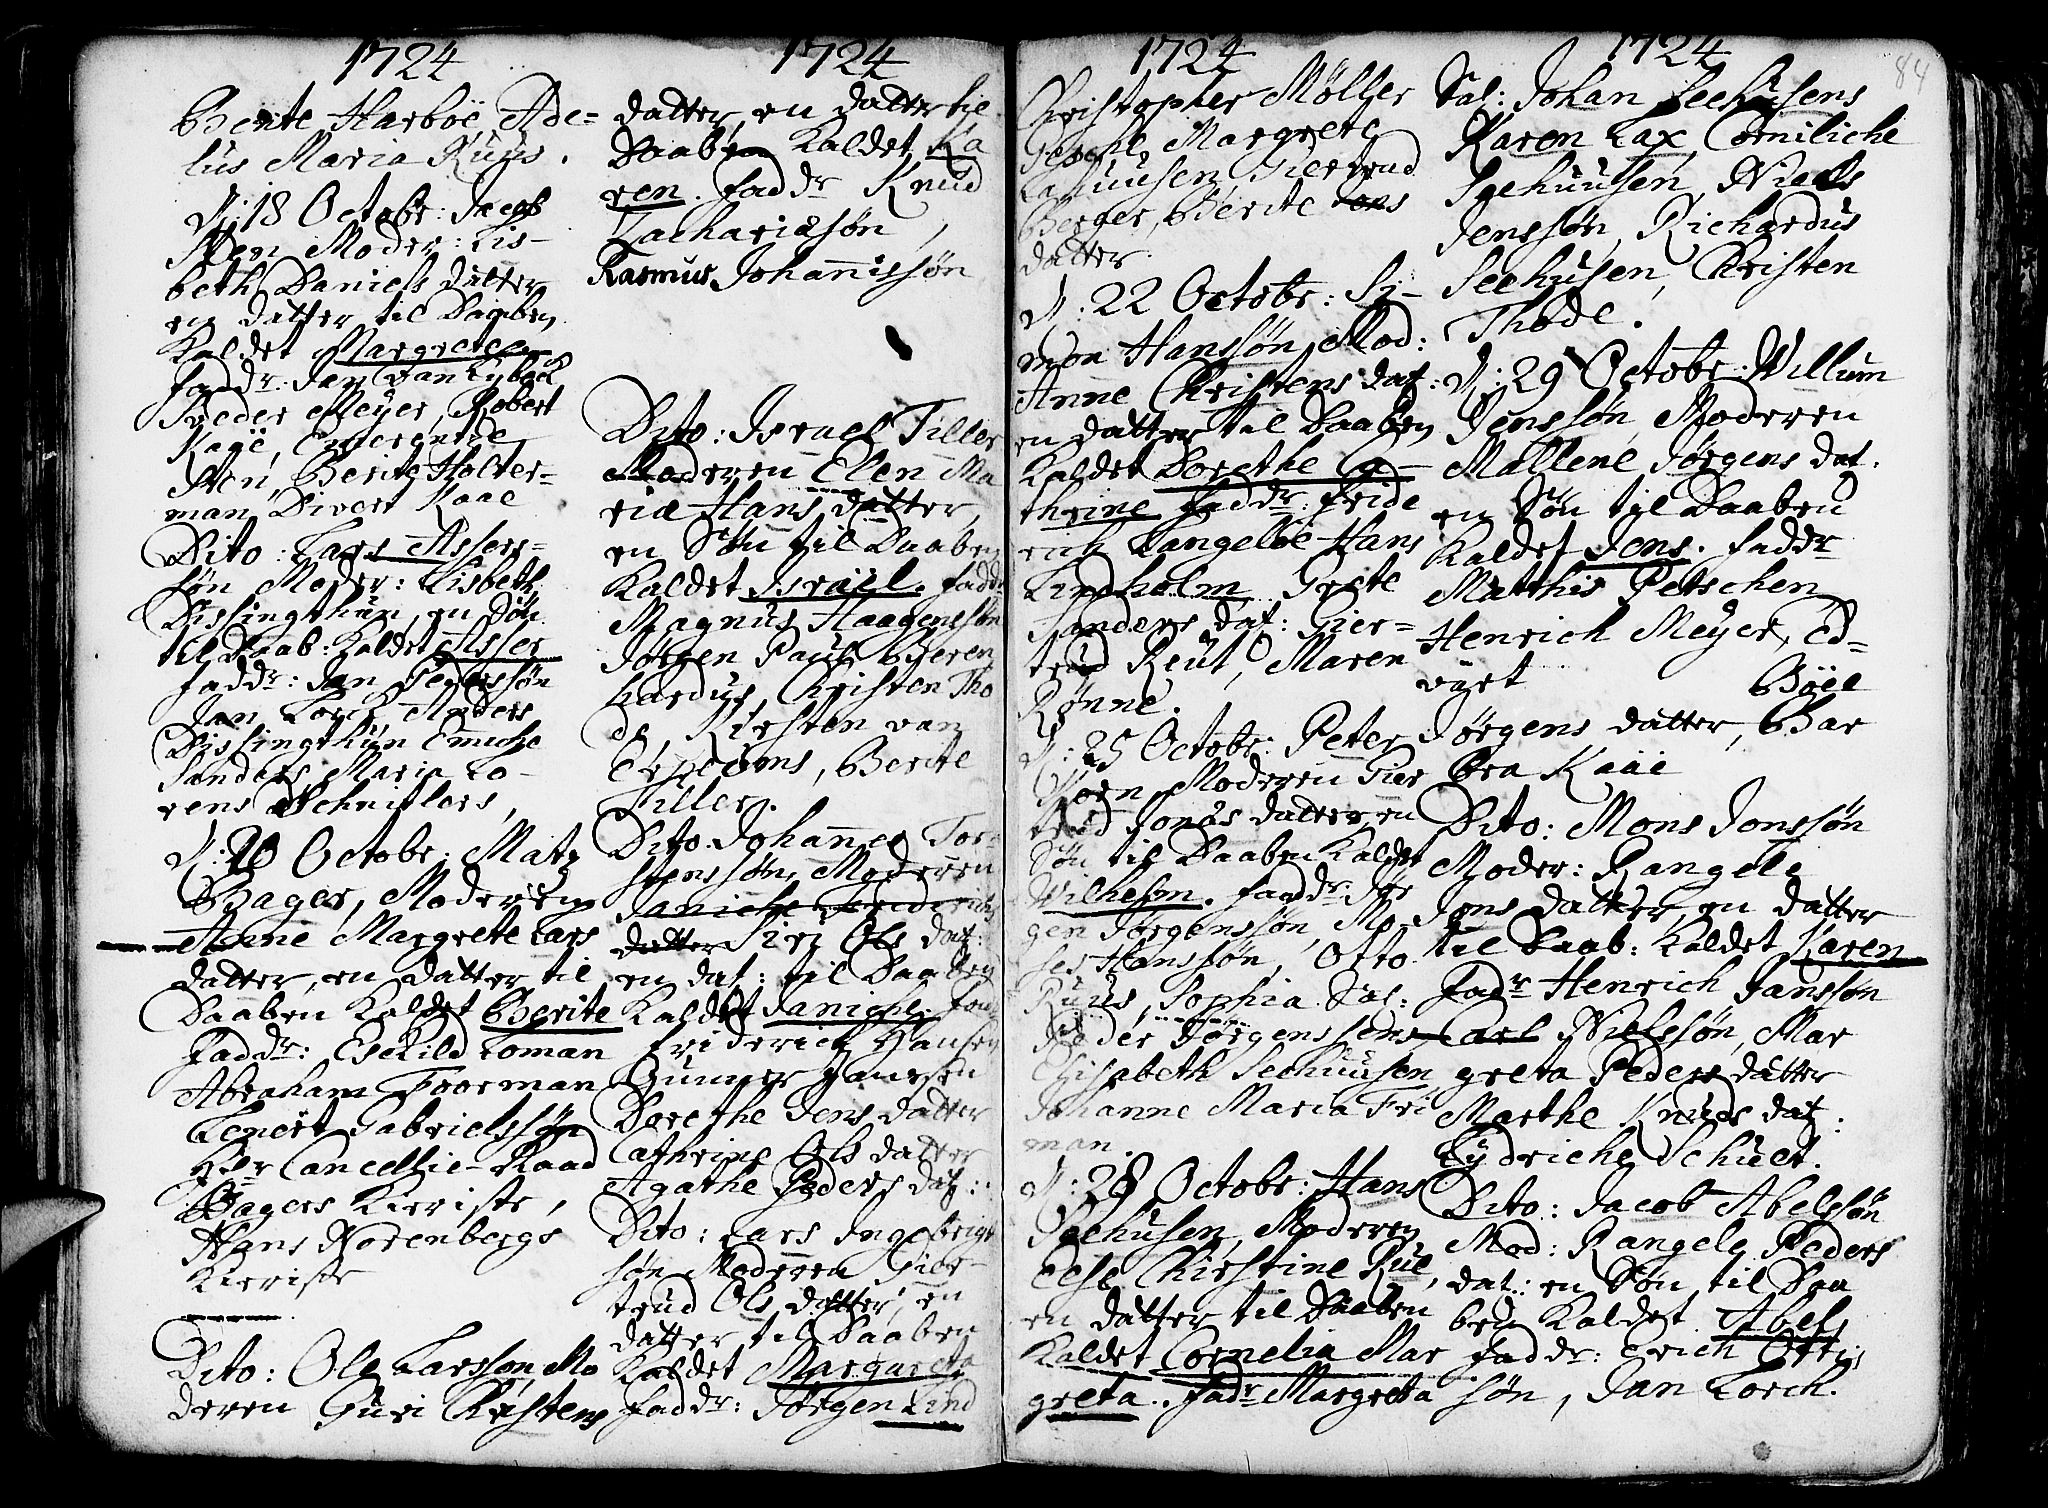 1724
Berite Harboe Ade=
lus Maria Ruus.
d: 18 Octobr: Jacob
Sten Moder: Lis-
beth Daniels datter
en datter til Daaben
Kaldet Margrete
faddr: Jan van Lybeck
Meyer, Robert
Kaae,
Sten, Berite Holter-
man, Divert Kaae
Dito: Lars Assers-
søn Moder: Lisbeth
Dissingthun, en Søn
til Daab: Kaldet Asser
faddr: Jan Pederssøn
Jan Lorch, Anders
Dissingthun Emiche
Sanders Maria Lo-
rens Schnitlers,
d: 20 Octobr: Matz
Bager, Moderen
Anne Margrete Lars
datter, en datter til
Daaben Kaldet Berite
faddr: Eschild Loman
Abraham Foorman
Lenert Gabrielssøn
Her Cancellie-Raad
Bagers Kieriste,
Hans Norenbergs
Kieriste
Dito: Ole Larssøn, Mo
deren Guri Christens
1724
datter, en datter til
Daaben Kaldet Ka
ren. faddr Knud
Zachariæsøn,
Rasmus Johannissøn
Dito: Israel Tiller
Moderen Elen Ma
ria Hans datter,
en Søn til Daaben
Kaldet Israel. faddr
Magnus Haagenssøn
Jørgen Paul Beren
hardus, Christen Tho
de, Kirsten van
Erpecoms, Berite
Tiller.
Dito Johannes Tor-
stenssøn, Moderen
Janiche Friderichs
datter Siri Ols dat:
en dat: til Daaben
Kaldet Janiche. fad
Friderich Hansen
Gunner Hansen
Dorethe Jens datter
Cathrine Ols datter
Agathe Peders dat:
Dito: Lars Ingebrigt
søn Moderen Gier-
trud Ols datter, en
datter til Daaben
Kaldet Margareta
faddr: Jørgen Lind
1724
Christopher Møller
Gesche Margrete
Giertrud
Berger, Berite Jons
datter
d: 22 Octobr: Si-
mon Hanssøn Mod:
Anne Christens dat:
en datter til Daaben
Kaldet Dorethe Ca-
thrine faddr: Fride
rich Langeloe Hans
Lindholm, Grete
Sanders dat: Gier=
trud Reut, Maren
Rønne.
d: 25 Octobr: Peter
Korn Moderen Gier
trud Jonas datter, en
Søn til Daaben Kaldet
Wilhelm. faddr: Jør
gen Jørgenssøn, Mo-
ses Hanssøn, Otto
Ruus, Sophia Sal:
Peder Jørgenssens
Elisabeth Seehuusen,
Johanne Maria Fri
man.
d: 28 Octobr: Hans
Seehusen, Moderen
Else Christine Rue,
en datter til Daaben
Kaldet Cornelia Mar
greta. fadr Margreta
1724
84
Sal: Johan Seehusens
Karen Lax, Corniliche
Seehuusen, Niels
Jenssøn, Richardus
Seehusen, Christen
Thode.
d: 29 Octobr: Willum
Jenssøn, Moderen
Mallene Jørgens dat.
en Søn til Daaben
Kaldet Jens. faddr
Matthis Petschen
Henrich Meyer, Ed-
vært Böee
Jørgens datter, Bar
bra Kaae
Dito: Mons Jonssøn
Moder: Rangele
Jons datter, en datter
til Daab: Kaldet Karen
fadr Henrich Janssøn
Carl Nielssøn, Mar
greta Peders datter
Marthe Knuds dat:
Lydriche Schult.
Dito: Jacob Abelssøn
Mod: Rangele Peders
dat: en Søn til Daa
ben Kaldet Abel,
faddr: Erich Ottis
søn, Jan Lorch.